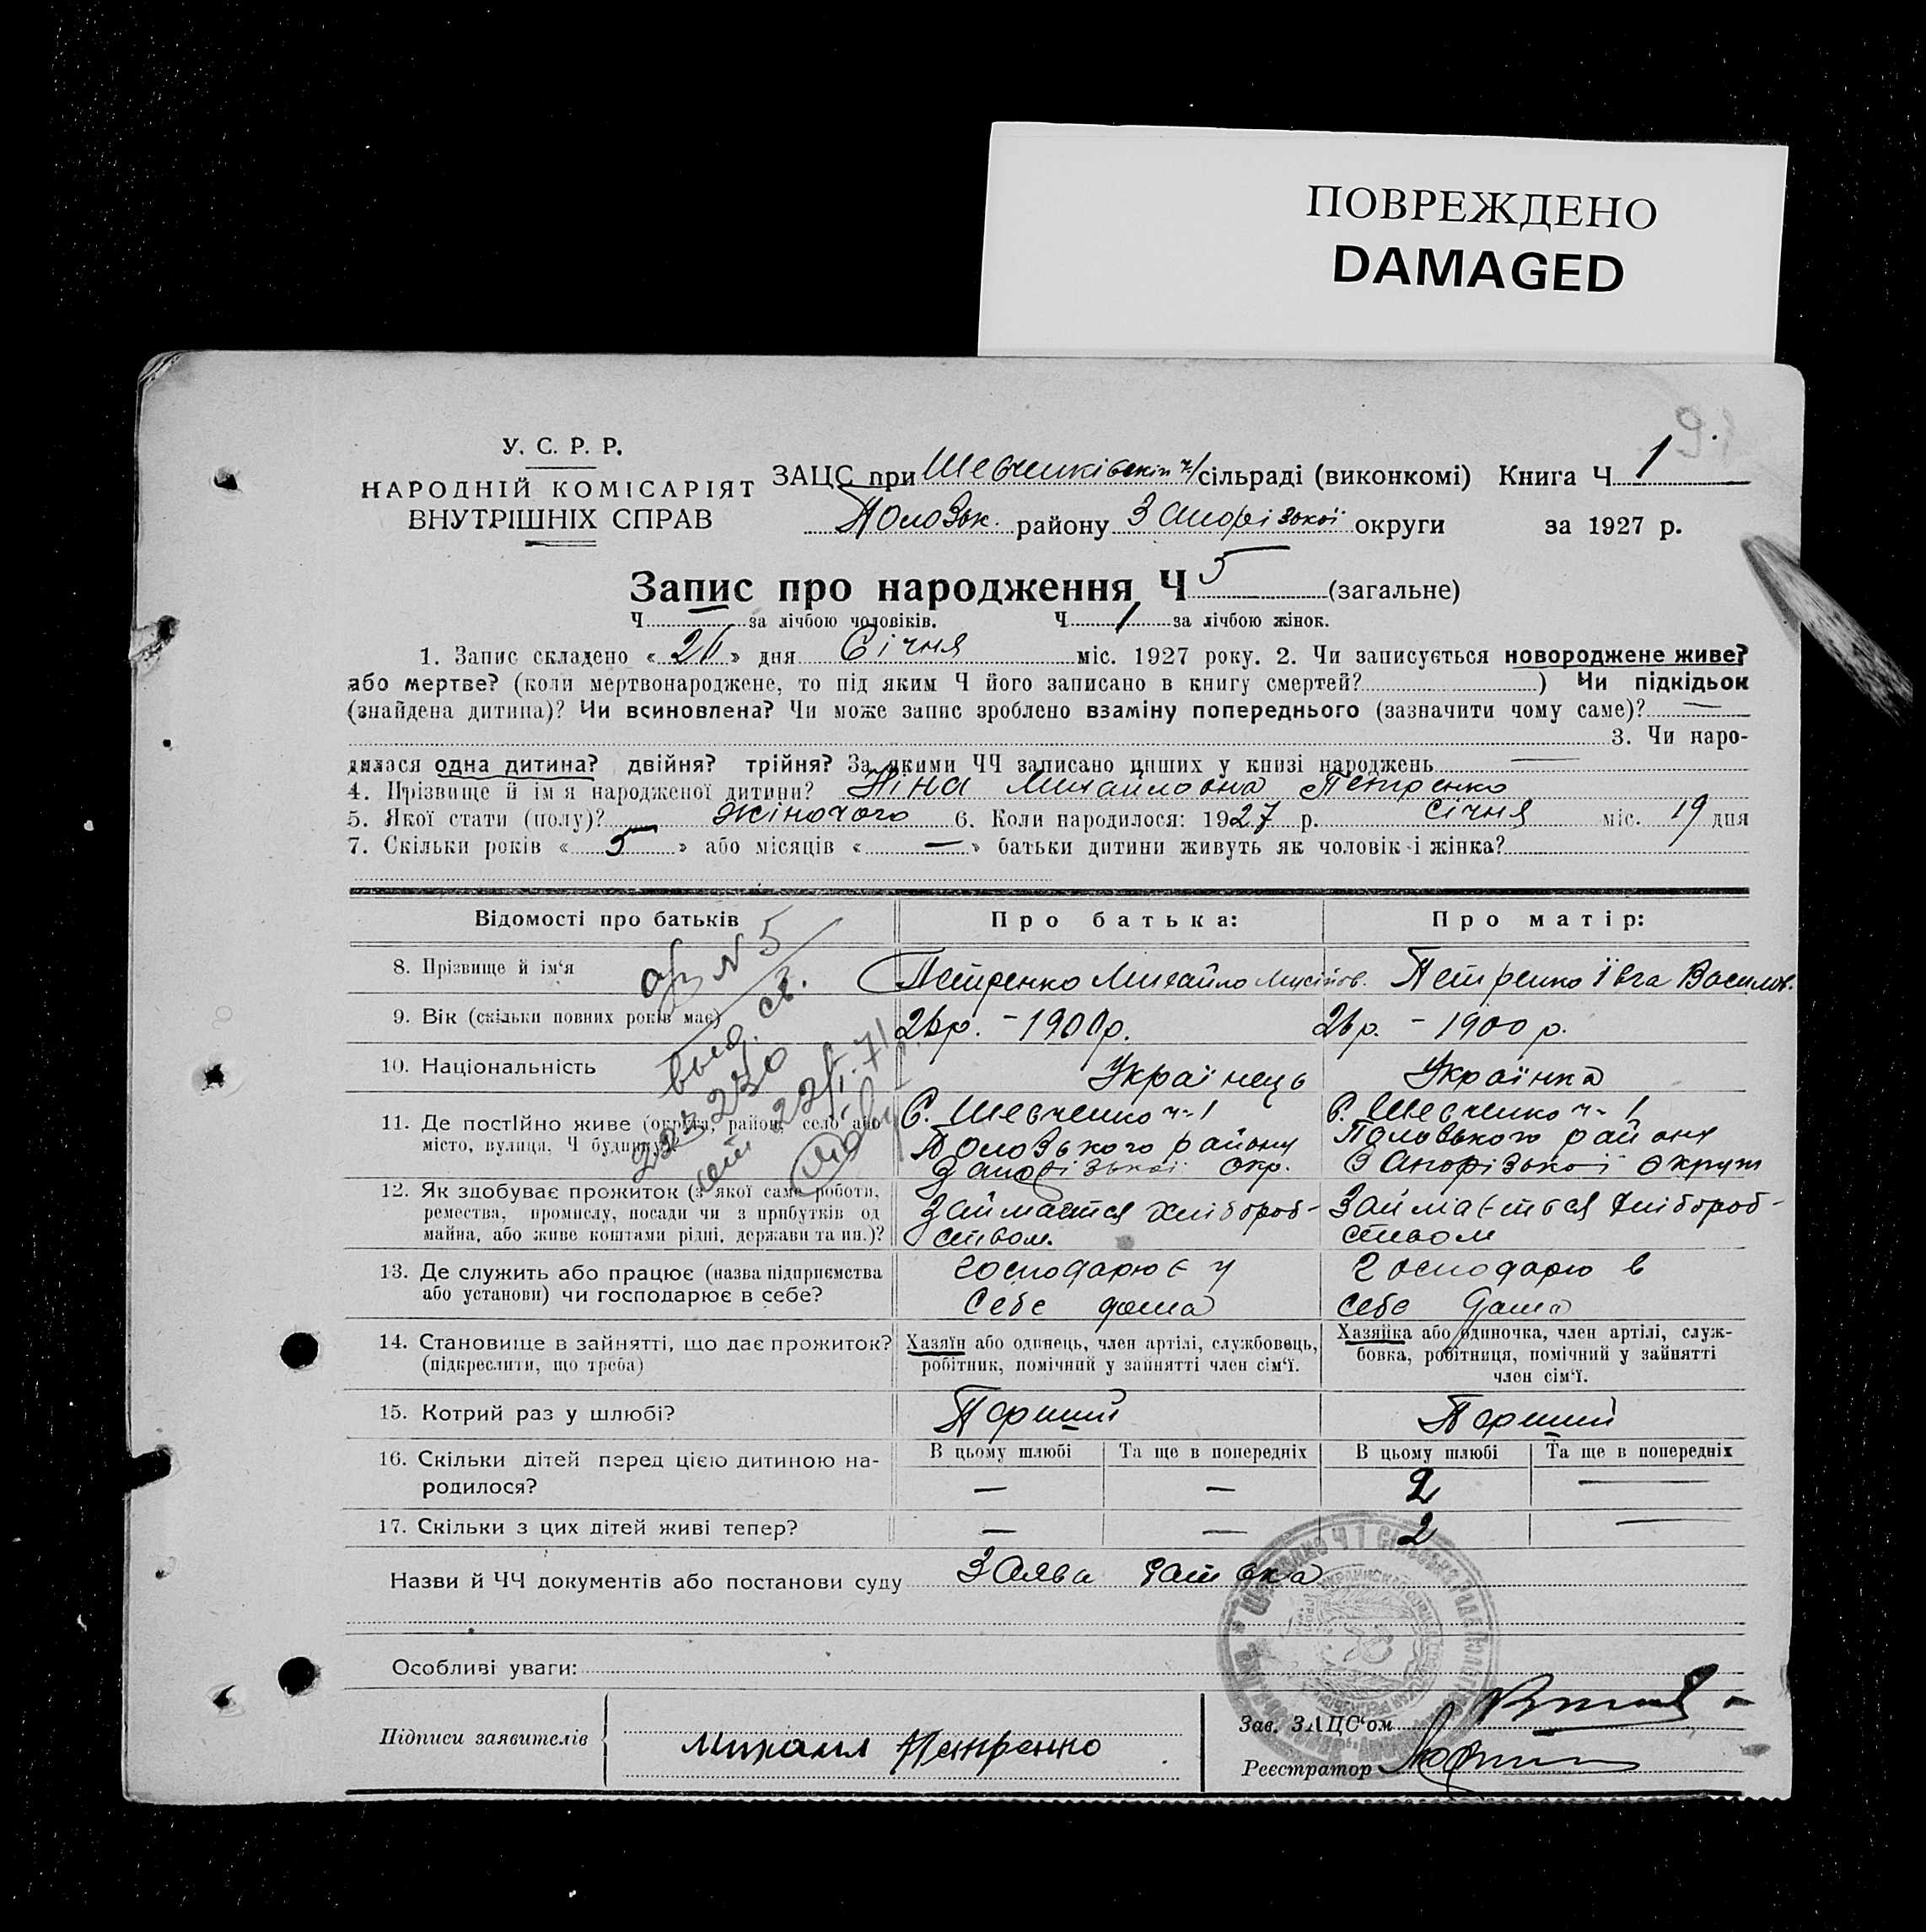 ПОВРЕЖДЕНО
DAMAGED
У. С. Р. Р.
НАРОДНІЙ КОМІСАРІЯТ
ВНУТРІШНІХ СПРАВ
ЗАЦС при Шевченківскій ч/1 сільраді (виконкомі) Книга Ч 1
Полозьк. району Запорізької округи за 1927 р.
Запис про народження Ч 5 (загальне)
Ч за лічбою чоловіків. Ч 1 за лічбою жінок.
1. Запис складено « 26 » дня Січня міс. 1927 року. 2. Чи записується новороджене живе?
або мертве? (коли мертвонароджене, то під яким Ч його записано в книгу смертей? ) Чи підкідьок
(знайдена дитина)? Чи всиновлена? Чи може запис зроблено взаміну попереднього (зазначити чому саме)? —
3. Чи наро-
дилася одна дитина? двійня? трійня? За якими ЧЧ записано инших у книзі народжень —
4. Прізвище й ім'я народженої дитини? Ніна Михайловна Петренко
5. Якої стати (полу)? Жіночого 6. Коли народилося: 1927 р. січня міс. 19 дня
7. Скільки років « 5 » або місяців « — » батьки дитини живуть як чоловік і жінка?
Відомості про батьків Про батька: Про матір:
8. Прізвище й ім'я Петренко Михайло Мусійов. Петренко Івга Василов.
9. Вік (скільки повних років має) 26р. – 1900р. 26р. – 1900 р.
10. Національність Українець Українка
11. Де постійно живе (округа, район, село або
місто, вулиця, Ч будинку)
С. Шевченко ч-1
Полозького району
Запорізької окр.
С. Шевченко ч-1
Полозького району
Запорізької округи
12. Як здобуває прожиток (з якої саме роботи,
ремества, промислу, посади чи з прибутків од
майна, або живе коштами рідні, держави та ин.)?
Займається хлібороб-
ством.
Займається хлібороб-
ством
13. Де служить або працює (назва підприємства
або установи) чи господарює в себе?
господарює у
себе дома
господарю в
себе дома
14. Становище в зайнятті, що дає прожиток?
(підкреслити, що треба)
Хазяїн або одинець, член артілі, службовець,
робітник, помічний у зайнятті член сім'ї.
Хазяйка або одиночка, член артілі, служ-
бовка, робітниця, помічний у зайнятті
член сім'ї.
15. Котрий раз у шлюбі? Перший Перший
16. Скільки дітей перед цією дитиною на-
родилося?
В цьому шлюбі Та ще в попередніх В цьому шлюбі Та ще в попередніх
— — 2 —
17. Скільки з цих дітей живі тепер? — — 2 —
Назви й ЧЧ документів або постанови суду Заява батька
Особливі уваги:
Підписи заявителів Михаил Петренко
Зав. ЗАЦС'ом
Реєстратор
N 5
выд. св.